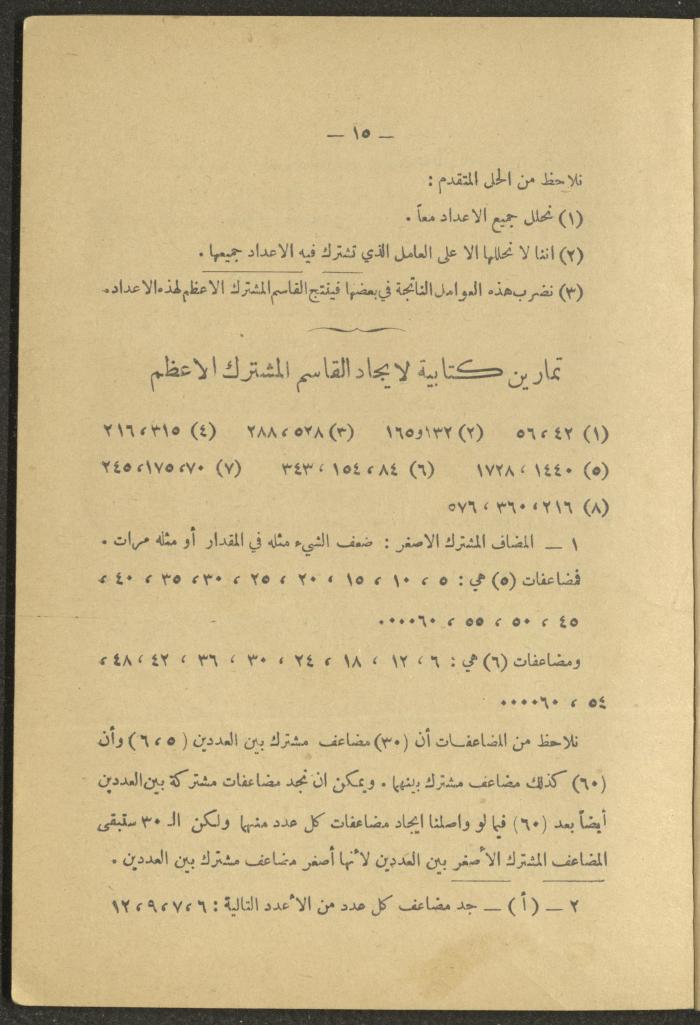 — ١٥ —
نلاحظ من الحل المتقدم :
(١) نحلل جميع الاعداد معاً .
(٢) اننا لا نحللها الا على العامل الذي تشترك فيه الاعداد جميعها .
(٣) نضرب هذه العوامل الناتجة في بعضها فينتج القاسم المشترك الاعظم لهذه الاعداد.
تمارين كتابية لايجاد القاسم المشترك الاعظم
(١) ٤٢ ، ٥٦ (٢) ١٣٢و١٦٥ (٣) ٥٢٨ ، ٢٨٨ (٤) ٣١٥ ، ٢١٦
(٥) ١٤٤٠ ، ١٧٢٨ (٦) ٨٤ ، ١٥٤ ، ٣٤٣ (٧) ٧٠ ، ١٧٥ ، ٢٤٥
(٨) ٢١٦ ، ٣٦٠ ، ٥٧٦
١ — المضاف المشترك الاصغر : ضعف الشيء مثله في المقدار أو مثله مرات .
فمضاعفات (٥) هي : ٥ ، ١٠ ، ١٥ ، ٢٠ ، ٢٥ ، ٣٠ ، ٣٥ ، ٤٠ ،
٤٥ ، ٥٠ ، ٥٥ ، ٦٠ ....
ومضاعفات (٦) هي : ٦ ، ١٢ ، ١٨ ، ٢٤ ، ٣٠ ، ٣٦ ، ٤٢ ، ٤٨ ،
٥٤ ، ٦٠ .....
نلاحظ من المضاعفات أن (٣٠) مضاعف مشترك بين العددين ( ٥ ، ٦ ) وأن
(٦٠) كذلك مضاعف مشترك بينهما . ويمكن ان نجد مضاعفات مشتركة بين العددين
أيضاً بعد (٦٠) فيما لو واصلنا ايجاد مضاعفات كل عدد منهما ولكن الـ ٣٠ ستبقى
المضاعف المشترك الأصغر بين العددين لأنها أصغر مضاعف مشترك بين العددين .
٢ — (أ) — جد مضاعف كل عدد من الأعدد التالية : ٦ ، ٧ ، ٩ ، ١٢